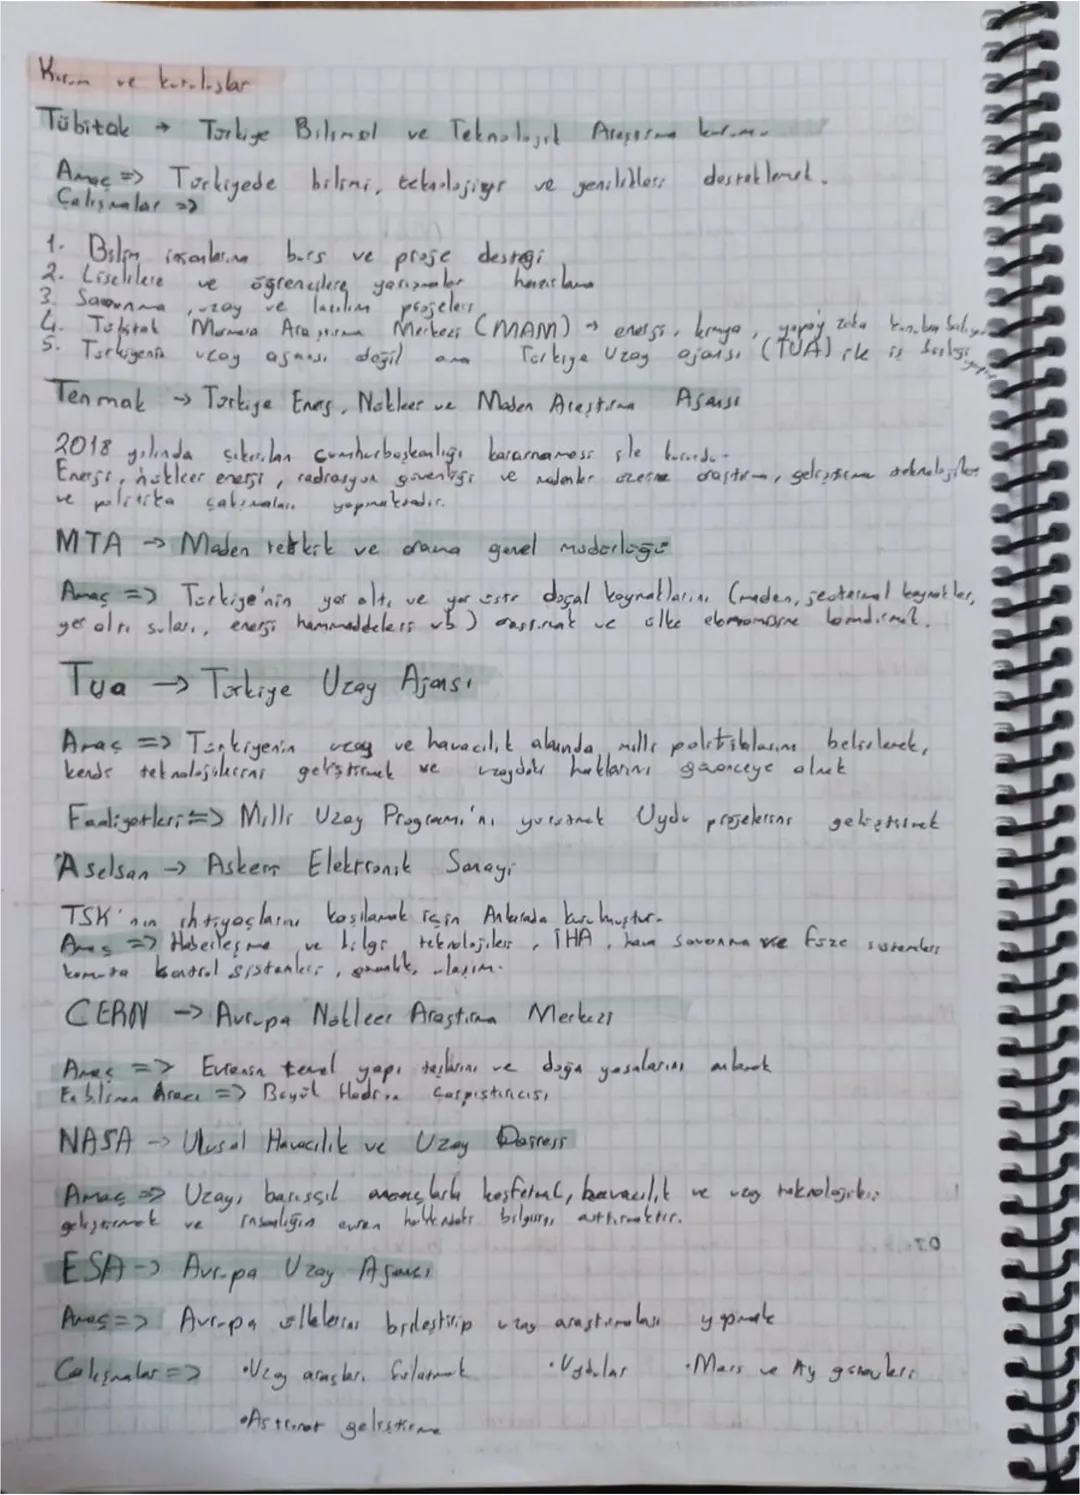 Kurum ve kuruluşlar
Tübitak → Türkiye Bilimsel ve Teknolojik Araştırma kurumu
Amaç => Türkiyede bilimi, teknolojiyi ve yenilikleri desteklemek.
Çalışmalar =>
1. Bilim insanlarına burs ve proje desteği
2. Liselilere ve öğrencilere yarışmalar hazırlama
3. Savunma, uzay ve yazılım projeleri
4. Tübitak Marmara Araştırma Merkezi (MAM) → enerji, kimya, yapay zeka
5. Türkiyenin uzay ajansı değil ama Türkiye Uzay ajansı (TUA) ile iş birliği
Tenmak → Türkiye Enerji, Nükleer ve Maden Araştırma Ajansı
2018 yılında çıkarılan cumhurbaşkanlığı kararnamesi ile kuruldu.
Enerji, nükleer enerji, radrasyon güvenliği ve madenler üzerine araştırma, geliştirme teknolojiler
ve politika çalışmaları yapmaktadır.
MTA → Maden tetkik ve arama genel müdürlüğü
Amaç => Türkiye'nin yer altı ve yer üstü doğal kaynaklarını (maden, jeotermal kaynaklar,
yer altı suları, enerji hammaddeleri vb) araştırmak ve ülke ekonomisine kazandırmak.
Tua → Türkiye Uzay Ajansı
Amaç => Türkiyenin uzay ve havacılık alanında milli politikalarını belirlemek,
kendi teknolojilerini geliştirmek ve uzaydaki haklarını güvenceye almak
Faaliyetleri => Milli Uzay Programı'nı yürütmek Uydu projelerini geliştirmek
Aselsan → Askeri Elektronik Sanayi
TSK'nın ihtiyaçlarını karşılamak için Ankarada kurulmuştur.
Amaç => Haberleşme ve bilgi teknolojileri, İHA, hava savunma ve füze sistemleri
komuta kontrol sistemleri, güvenlik, ulaşım.
CERN → Avrupa Nükleer Araştırma Merkezi
Amaç => Evrenin temel yapı taşlarını ve doğa yasalarını anlamak
En bilinen Aracı => Büyük Hadron Çarpıştırıcısı
NASA → Ulusal Havacılık ve Uzay Dairesi
Amaç => Uzayı barışçıl amaçlarla keşfetmek, havacılık ve uzay teknolojileri
geliştirmek ve insanlığın evren hakkındaki bilgisini arttırmaktır.
ESA → Avrupa Uzay Ajansı
Amaç => Avrupa ülkelerini birleştirip uzay araştırmaları yapmak
Çalışmalar => •Uzay araçları fırlatmak •Uydular •Mars ve Ay görevleri
•Astronot geliştirme